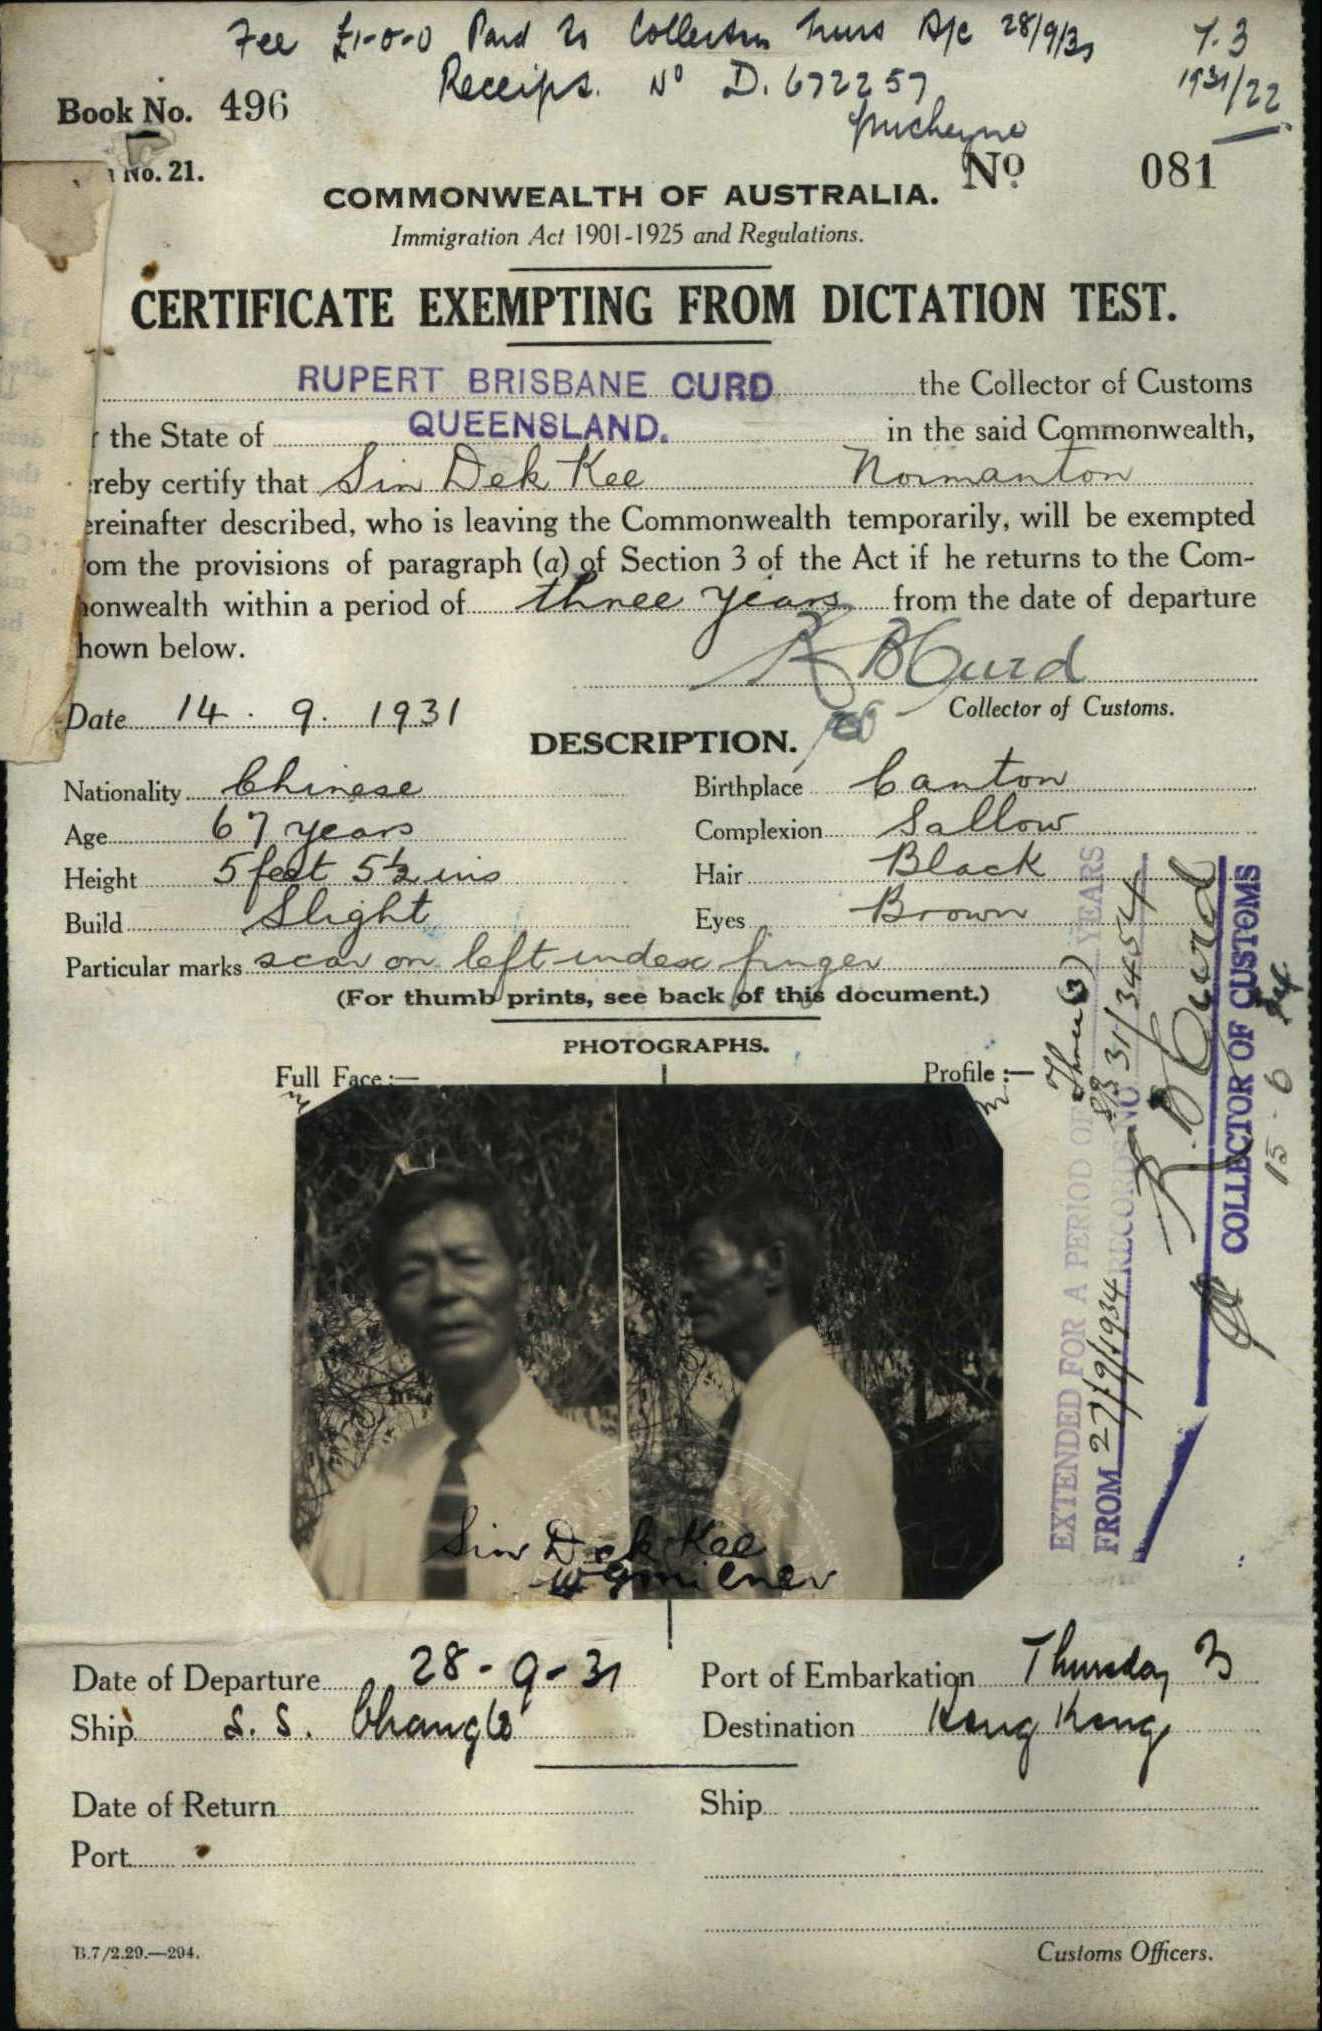 Fee £1-0-0 Paid to Collector Trust A/c 28/9/31
T. 3
Receipt. No D. 672257
1931/22
Book No. 496
No. 21.
No. 081
COMMONWEALTH OF AUSTRALIA.
Immigration Act 1901-1925 and Regulations.
CERTIFICATE EXEMPTING FROM DICTATION TEST.
RUPERT BRISBANE CURD the Collector of Customs
the State of QUEENSLAND. in the said Commonwealth,
reby certify that Sin Dek Kee Normanton
ereinafter described, who is leaving the Commonwealth temporarily, will be exempted
om the provisions of paragraph (a) of Section 3 of the Act if he returns to the Com-
onwealth within a period of three years from the date of departure
hown below.
R B Curd
Date 14. 9. 1931
Collector of Customs.
DESCRIPTION.
Nationality Chinese
Birthplace Canton
Age 67 years
Complexion Sallow
Height 5 feet 5½ ins
Hair Black
Build Slight
Eyes Brown
Particular marks scar on left index finger
(For thumb prints, see back of this document.)
PHOTOGRAPHS.
Full Face :—
Profile :—
Sin Dek Kee
EXTENDED FOR A PERIOD OF Three (3) YEARS
FROM 27/9/1934 RECORD NO 31/3454
R. B Curd
COLLECTOR OF CUSTOMS
15-6
Date of Departure 28-9-31
Port of Embarkation Thursday Is
Ship S. S. Changte
Destination Hong Kong
Date of Return
Ship
Port
B.7/2.29.—294.
Customs Officers.